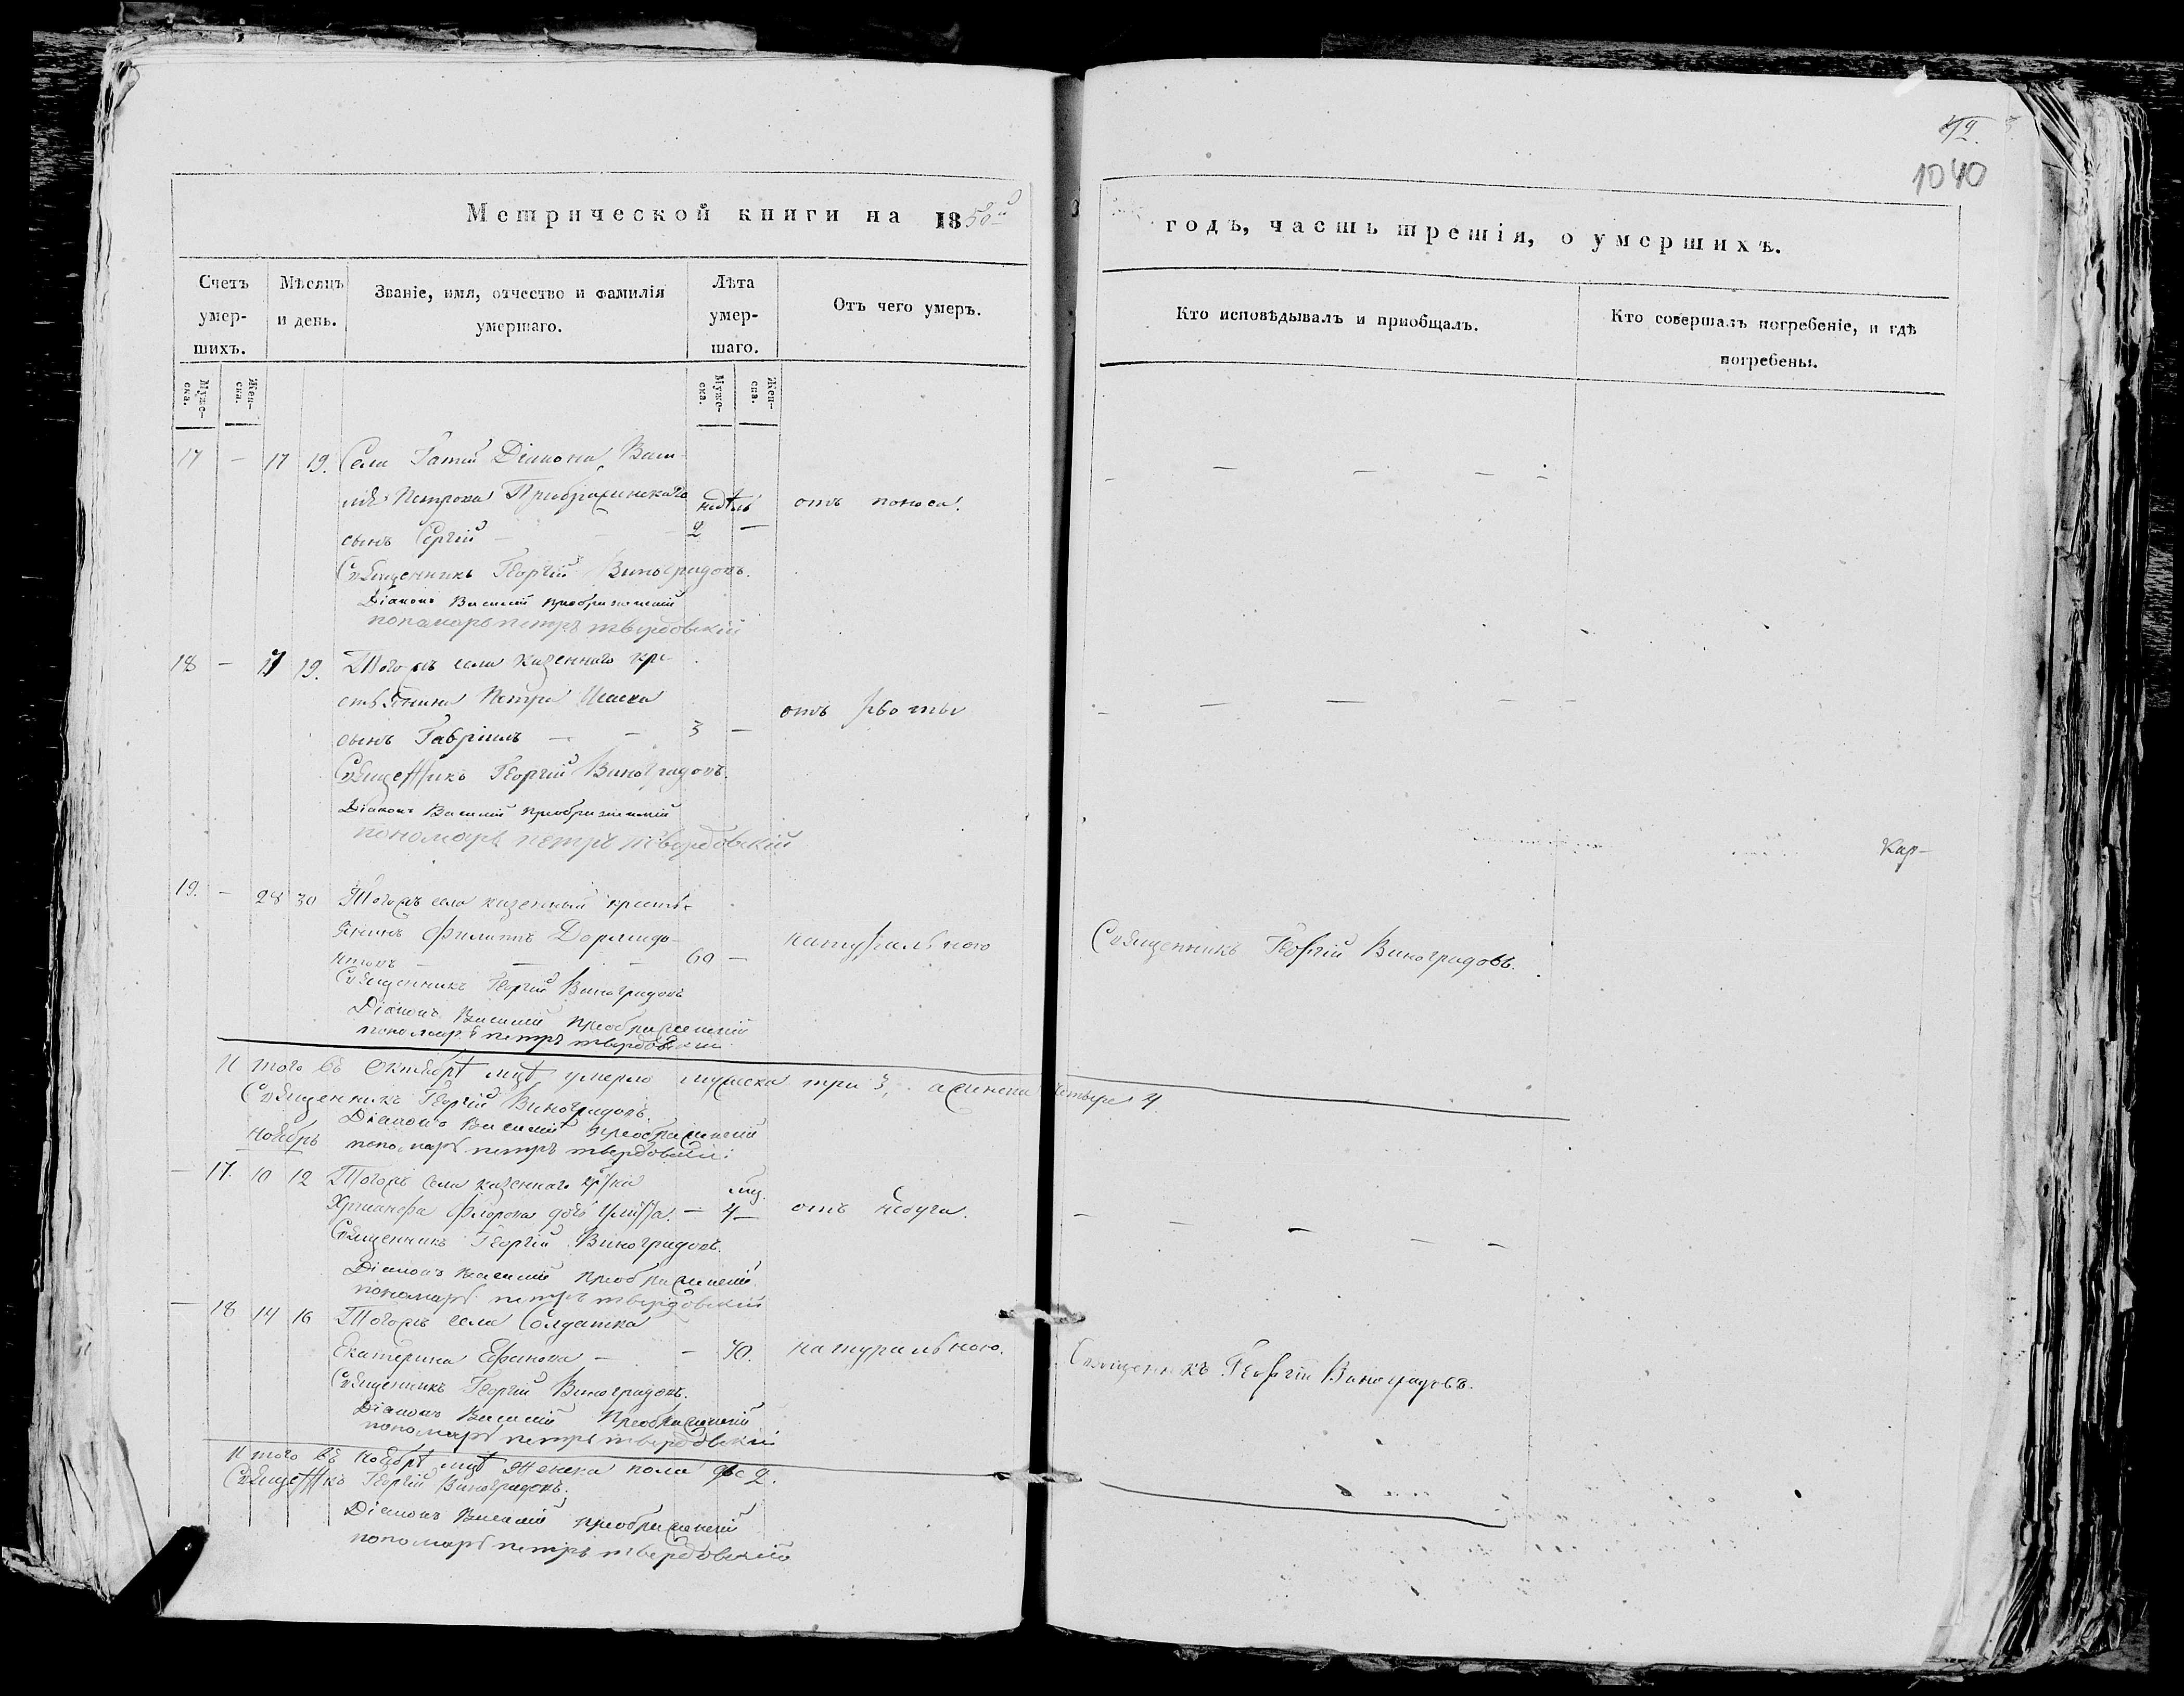 42.
1040
Метрической книги на 1850й
годъ, часть третія, о умершихъ.
Счетъ умер-шихъ.
Мѣсяцъ и день.
Званіе, имя, отчество и фамилія умершаго.
Лѣта умер-шаго.
Отъ чего умеръ.
Кто исповѣдывалъ и пріобщалъ.
Кто совершалъ погребеніе, и гдѣ погребены.
Муже-ска.
Жен-ска.
Муже-ска.
Жен-ска.
17 — 17 19. Села Діакона Васи-
лія Петрова Преображенскаго недѣль отъ поноса.
сынъ Сергій — 2 —
Священникъ Георгій Виноградовъ.
Діаконъ Василій Преображенскій
пономарь петръ твердовскій
18 — 17 19. Тогожъ села казеннаго кре-
стьянина Петра Исаева отъ рвоты
сынъ Гавріилъ — — 3 —
Священникъ Георгій Виноградовъ.
Діаконъ Василій Преображенскій
пономарь петръ твердовскій
Кар-
19. — 28 30 Тогожъ села казенный кресть-
янинъ Филиппъ Дормидо- натуральною Священникъ Георгій Виноградовъ.
нтовъ — — — 60 —
Священникъ Георгій Виноградовъ
Діаконъ Василій Преображенскій
пономарь петръ твердовскій
Итого въ Октябрѣ мцѣ умерло мужеска три 3, а женска четыре 4
Священникъ Георгій Виноградовъ.
Діаконъ Василій Преображенскій
Ноябрь пономарь петръ твердовскій
— 17. 10 12 Тогожъ села казеннаго мц.
Флорова — 4 — отъ недуга.
Священникъ Георгій Виноградовъ.
Діаконъ Василій Преображенскій
пономарь петръ твердовскій
— 18 14 16 Тогожъ села Солдатка
Екатерина — — 70. натуральною. Священникъ Георгій Виноградовъ.
Священникъ Георгій Виноградовъ.
Діаконъ Василій Преображенскій
пономарь петръ твердовскій
Итого въ Ноябрѣ мцѣ Женска пола две 2.
Священникъ Георгій Виноградовъ.
Діаконъ Василій Преображенскій
пономарь петръ твердовскій